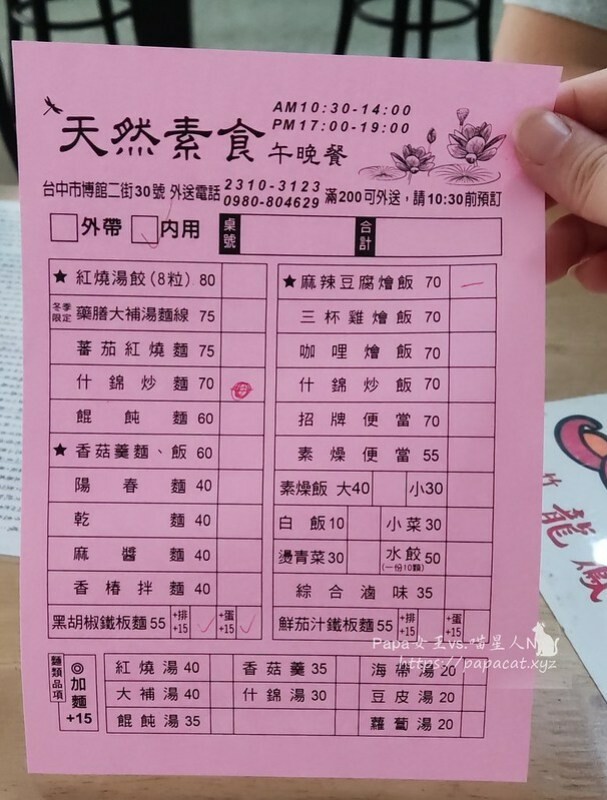 天然素食 午晚餐
AM10:30-14:00
PM17:00-19:00
台中市博館二街30號 外送電話 2310-3123
0980-804629 滿200可外送，請10:30前預訂
外帶 內用 桌號 合計
★ 紅燒湯餃(8粒) 80
冬季限定 藥膳大補湯麵線 75
蕃茄紅燒麵 75
什錦炒麵 70
餛飩麵 60
★ 香菇羹麵、飯 60
陽春麵 40
乾麵 40
麻醬麵 40
香椿拌麵 40
黑胡椒鐵板麵55 +排+15 +蛋+15
★ 麻辣豆腐燴飯 70
三杯雞燴飯 70
咖哩燴飯 70
什錦炒飯 70
招牌便當 70
素燥便當 55
素燥飯 大40 小30
白飯10 小菜30
燙青菜30 水餃50
(一份10顆)
綜合滷味 35
鮮茄汁鐵板麵55 +排+15 +蛋+15
麵類品項 ◎加麵+15
紅燒湯 40 香菇羹 35 海帶湯 20
大補湯 40 什錦湯 30 豆皮湯 20
餛飩湯 35 蘿蔔湯 20
竹
龍鳳
Papa女王vs.喵星人N
https://papacat.xyz